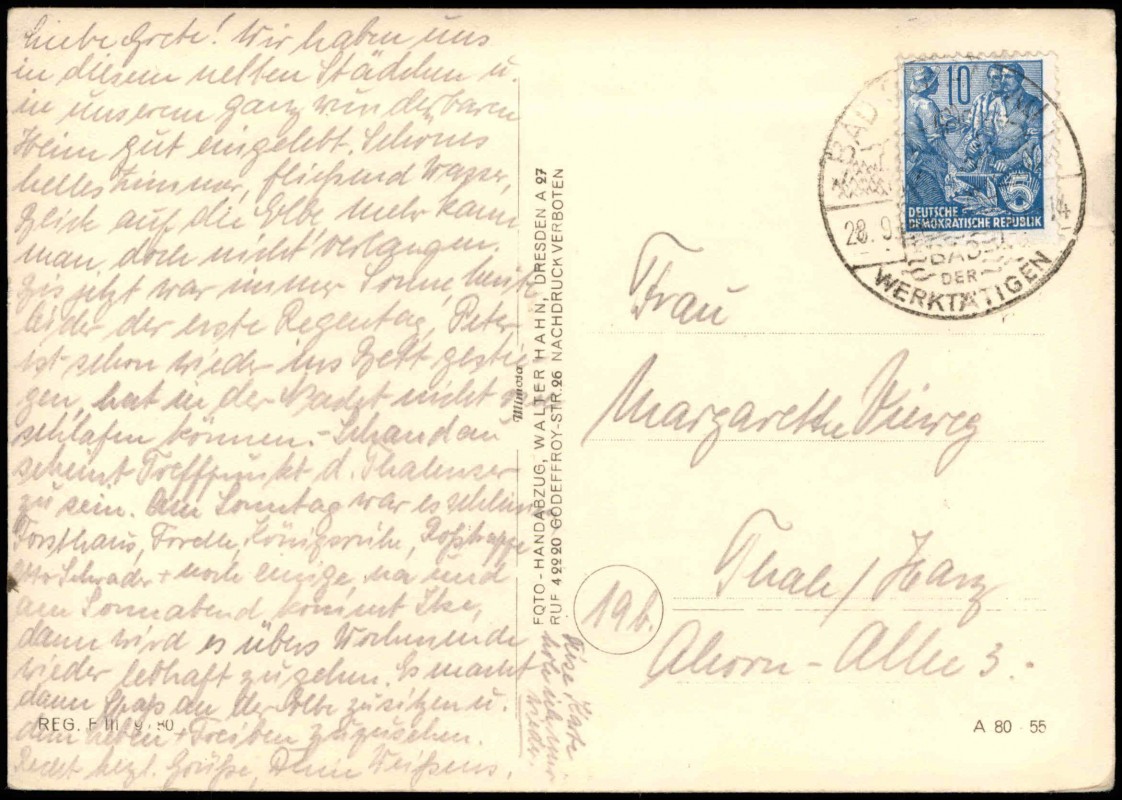 Liebe Grete! Wir haben uns
in diesem netten Städchen u.
in unserem ganz wunderbaren
Heim gut eingelebt. Schönes
helles Zimmer, fließend Wasser,
Blick auf die Elbe mehr kann
man doch nicht verlangen.
Bis jetzt war immer Sonne heute
leider der erste Regentag, Peter
ist schon wieder ins Bett gestie
gen, hat in der Nacht nicht
schlafen können. - Schandau
scheint Treffpunkt d. Thalenser
zu sein. Am Sonntag war es
Forsthaus, Forelle, Königsruhe, Roßtrappe
Schrader + noch einige, na und
am Sonnabend kommt Ilse,
dann wird es übers Wochenende
wieder lebhaft zugehen. Es macht
dann Spaß an der Elbe zu sitzen u.
dem Leben + Treiben zuzusehen.
Recht herzl. Grüße, Deine
Diese Karte
wieder.
REG. F III 9 80
Mimosa
FOTO-HANDABZUG, WALTER HAHN, DRESDEN A 27
RUF 42220 GODEFFROY-STR. 26 NACHDRUCK VERBOTEN
10
5
DEUTSCHE
DEMOKRATISCHE REPUBLIK
BAD
28. 9
14
BAD
DER
WERKTÄTIGEN
Frau
Margarethe Vieweg
19b.
Thale / Harz
Ahorn-Allee 3.
A 80 55